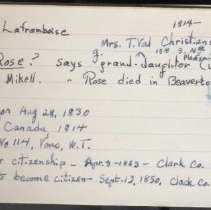 Laframboise
1814-
Mrs. T. Val Christian
Rose? says g. grand-daughter
Mikell. " Rose died in Beaverto
on Aug 28, 1830
Canada 1814
No 114, Vanc, W.T.
r citizenship - Apr. 3-1855 - Clark Co.
ts become citizen - Sept. 12, 1850, Clark Co.